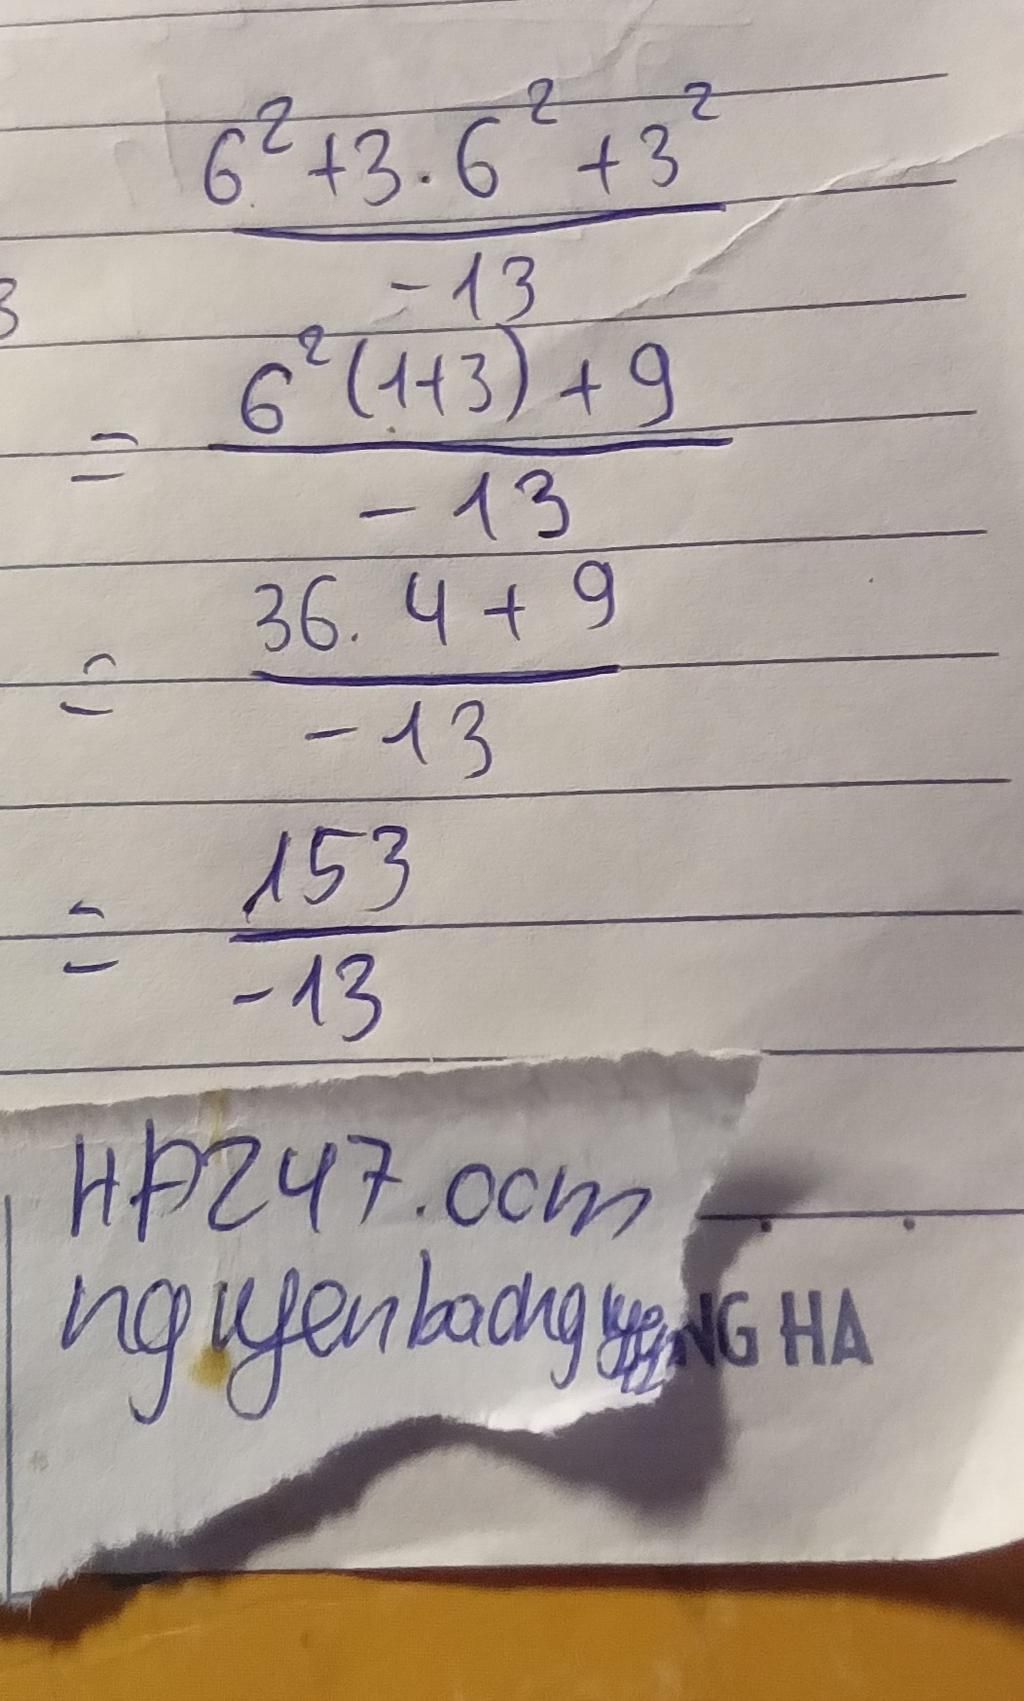 6² + 3 . 6² + 3²
- 13
3
6² (1+3) + 9
=
- 13
36 . 4 + 9
=
- 13
153
=
- 13
HA247.ocm
nguyenbachg
NG HA